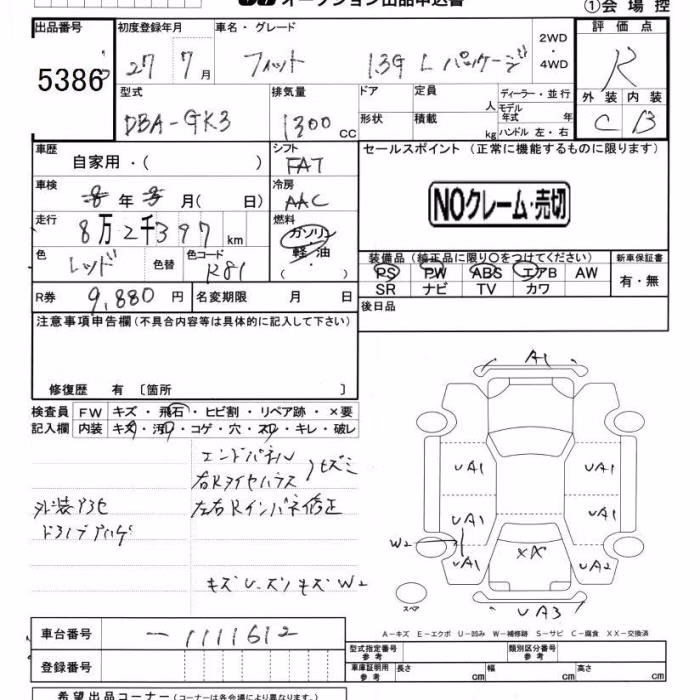 オークション出品申込書
①会場控
出品番号 5386
初度登録年月 27 7月
車名・グレード フィット 13G Lパッケージ
2WD・4WD
評価点 R
外装 C 内装 B
型式 DBA-GK3
排気量 1300 CC
ドア
形状
定員 人
積載 kg
ディーラー・並行
モデル年式 年
ハンドル 左・右
車歴 自家用・( )
シフト FAT
セールスポイント(正常に機能するものに限ります)
NOクレーム・売切
車検 年 月( 日)
冷房 AAC
走行 8万2千397 km
燃料 ガソリン 軽油 ( )
色 レッド 色替
色コード R81
装備品(純正品に限り〇をつけてください)
新車保証書 有・無
PS PW ABS エアB AW
SR ナビ TV カワ
R券 9,880 円
名変期限 月 日
後日品
注意事項申告欄(不具合内容等は具体的に記入して下さい)
修復歴 有〔箇所 〕
検査員記入欄
FW キズ・飛石・ヒビ割・リペア跡・×要
内装 キズ・汚れ・コゲ・穴・スレ・キレ・破レ
エンドパネル
右Rタイヤハウス
左右Rインパネ修正
外装
キズU.ズソキズW2
A1
UA1 UA1
UA1 UA1
W2
UA1 XX UA2
UA3
スペア
A-キズ E-エクボ U-凹み W-補修跡 S-サビ C-腐食 XX-交換済
車台番号 -1111612
登録番号
型式指定番号 参考
類別区分番号 参考
車庫証明用 参考 長さ cm 幅 cm 高さ cm
希望出品コーナー(コーナーは各会場により異なります。)